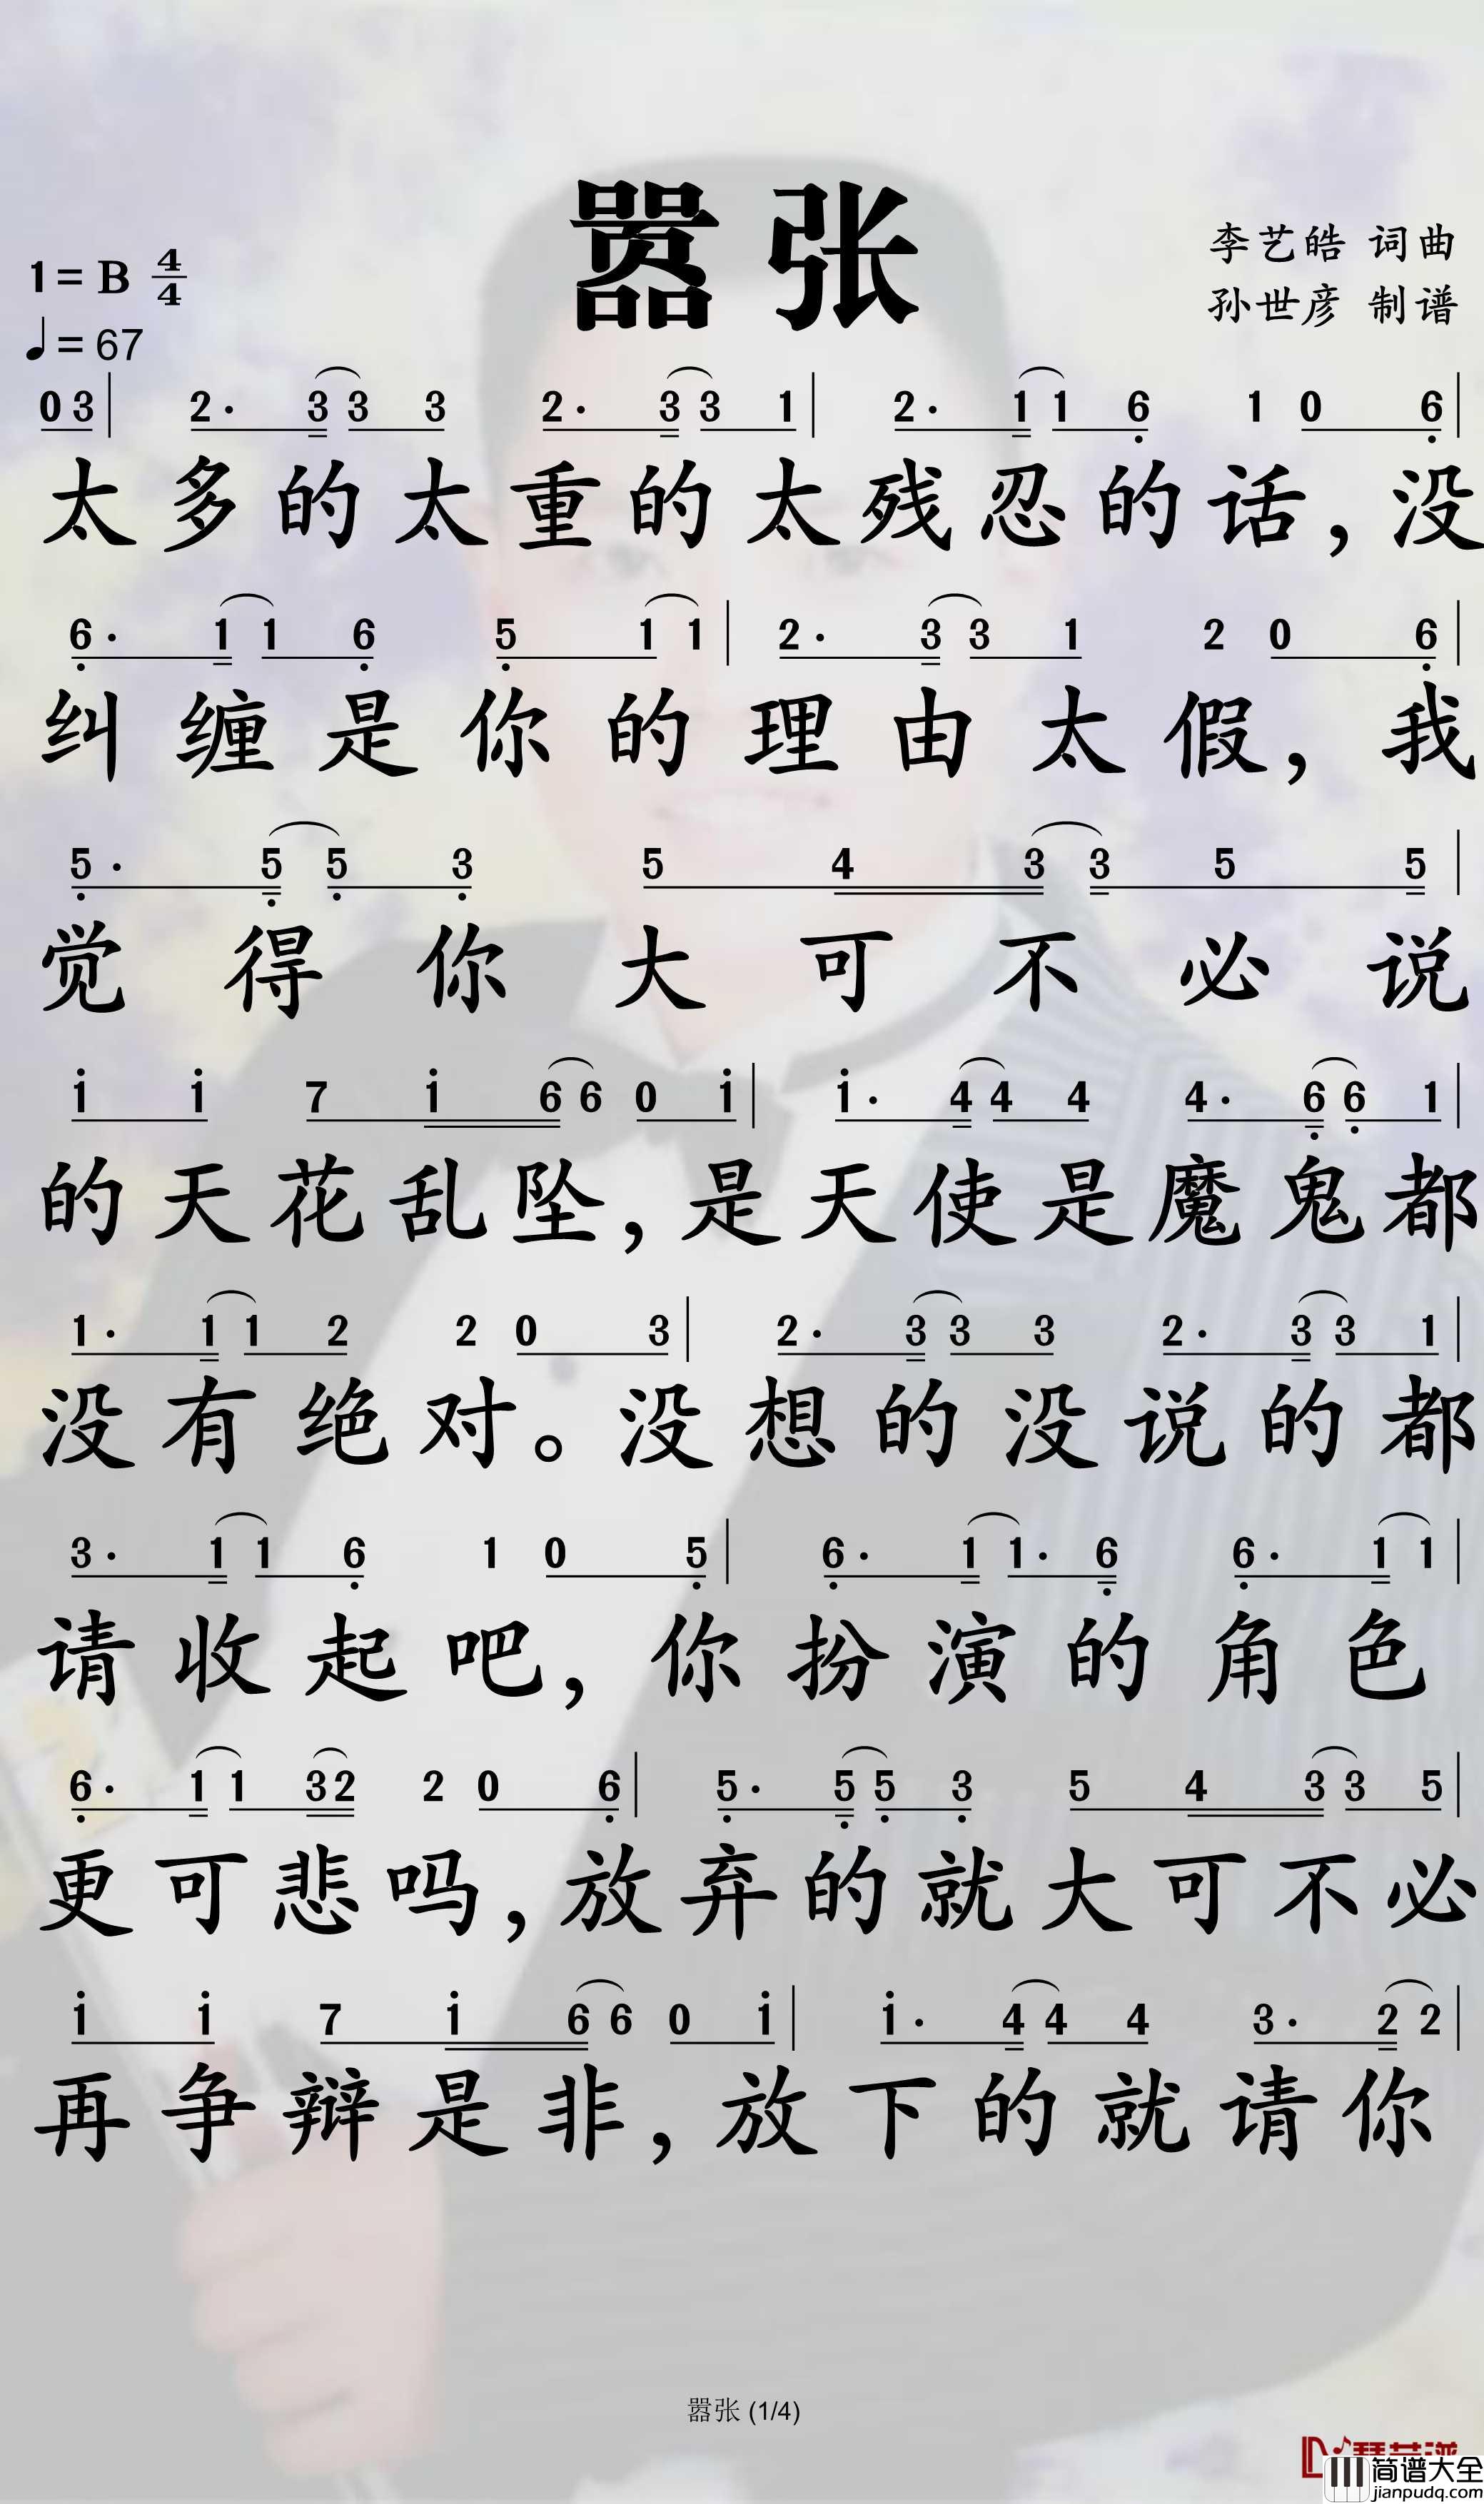 嚣张
李艺皓 词曲
孙世彦 制谱
1= B 4/4
♩= 67
0 3 | 2· 3 3 3 2· 3 3 1 | 2· 1 1 6 1 0 6 |
太多的太重的太残忍的话，没
6· 1 1 6 5 1 1 | 2· 3 3 1 2 0 6 |
纠缠是你的理由太假，我
5· 5 5 3 5 4 3 3 5 5 |
觉得你大可不必说
i i 7 i 6 6 0 i | i· 4 4 4 4· 6 6 1 |
的天花乱坠，是天使是魔鬼都
1· 1 1 2 2 0 3 | 2· 3 3 3 2· 3 3 1 |
没有绝对。没想的没说的都
3· 1 1 6 1 0 5 | 6· 1 1· 6 6· 1 1 |
请收起吧，你扮演的角色
6· 1 1 3 2 2 0 6 | 5· 5 5 3 5 4 3 3 5 |
更可悲吗，放弃的就大可不必
i i 7 i 6 6 0 i | i· 4 4 4 3· 2 2 |
再争辩是非，放下的就请你
嚣张 (1/4)
简谱大全
jianpudq.com